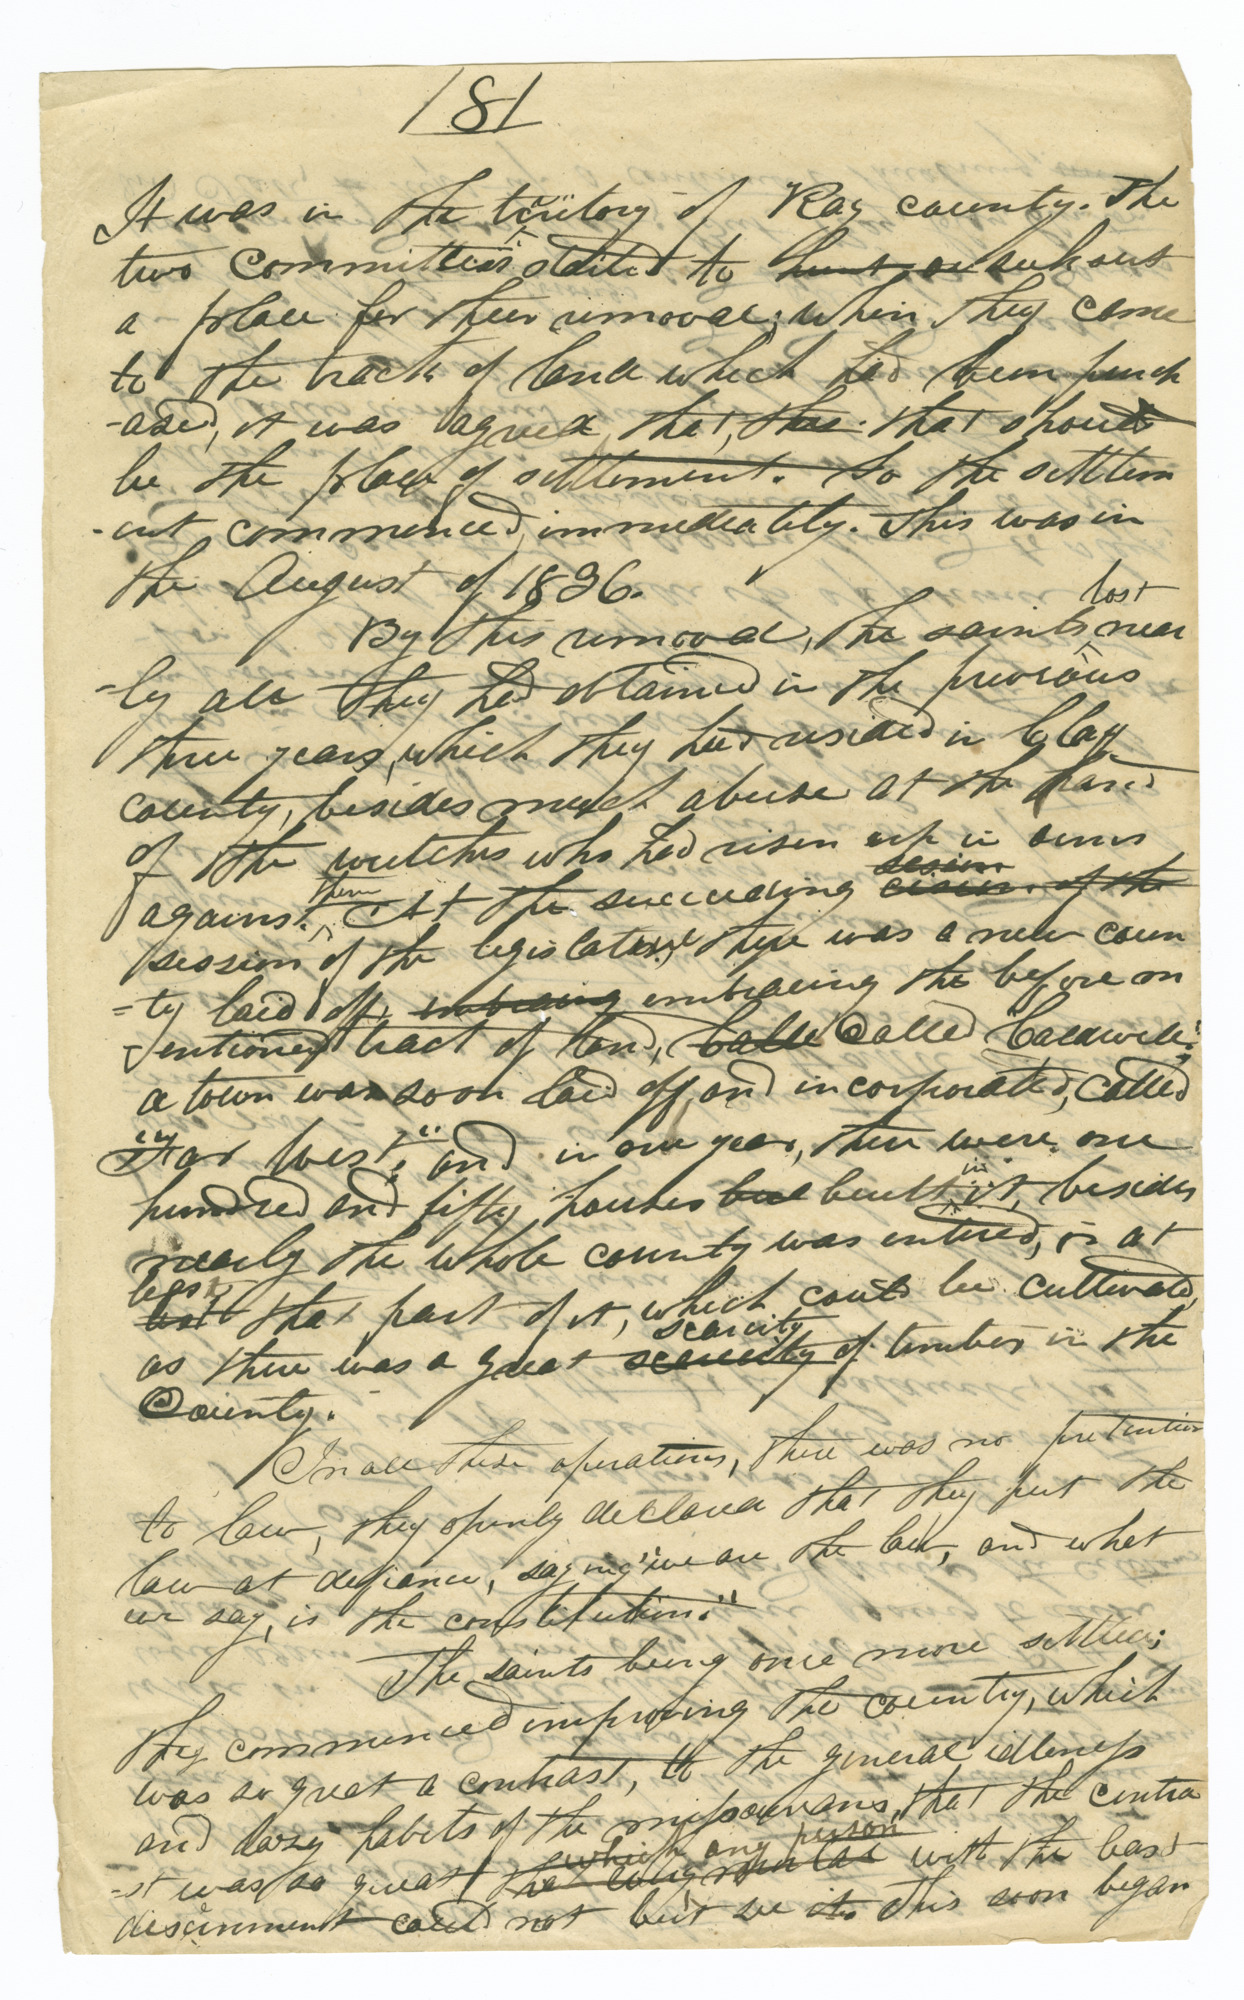 181
It was in the teritory of Ray county. The
two committees started to hunt or seek out
a place for their removal; when they came
to the track of land which had been purch
-ased, it was agreed, that, this that should
be the place of settlement. So the settlem
-ent commenced, immediately. This was in
the August of 1836.
By this removal, the saints lost near
-ly all they had obtained in the previous
three years, which they had resided in Clay
county, besides much abuse at the hand
of the wretches who had risen up in arms
against them. At the succeeding session of the
session of the legislature, there was a new coun
-ty laid off, embracing embracing the before m
-entioned tract of land, Calle Called "Caldwell;"
a town was soon laid off, and incorporated, called
"Far West"; and in one year, there were one
hundred and fifty houses buil built in it, besides
nearly the whole county was entered, or at
least that part of it, which could be cultivated,
as there was a great scarcity of timber in the
County.
In all these operations, there was no pretention
to law, they openly declared that they put the
law at defiance, saying "we are the law, and what
we say, is the constitution."
The saints being once more settled;
they commenced improving the country, which
was so great a contrast, to the general idleness
and lazy habits of the missourians, that the contra
-st was so great which any person with the least
discernment could not but see it. This soon began